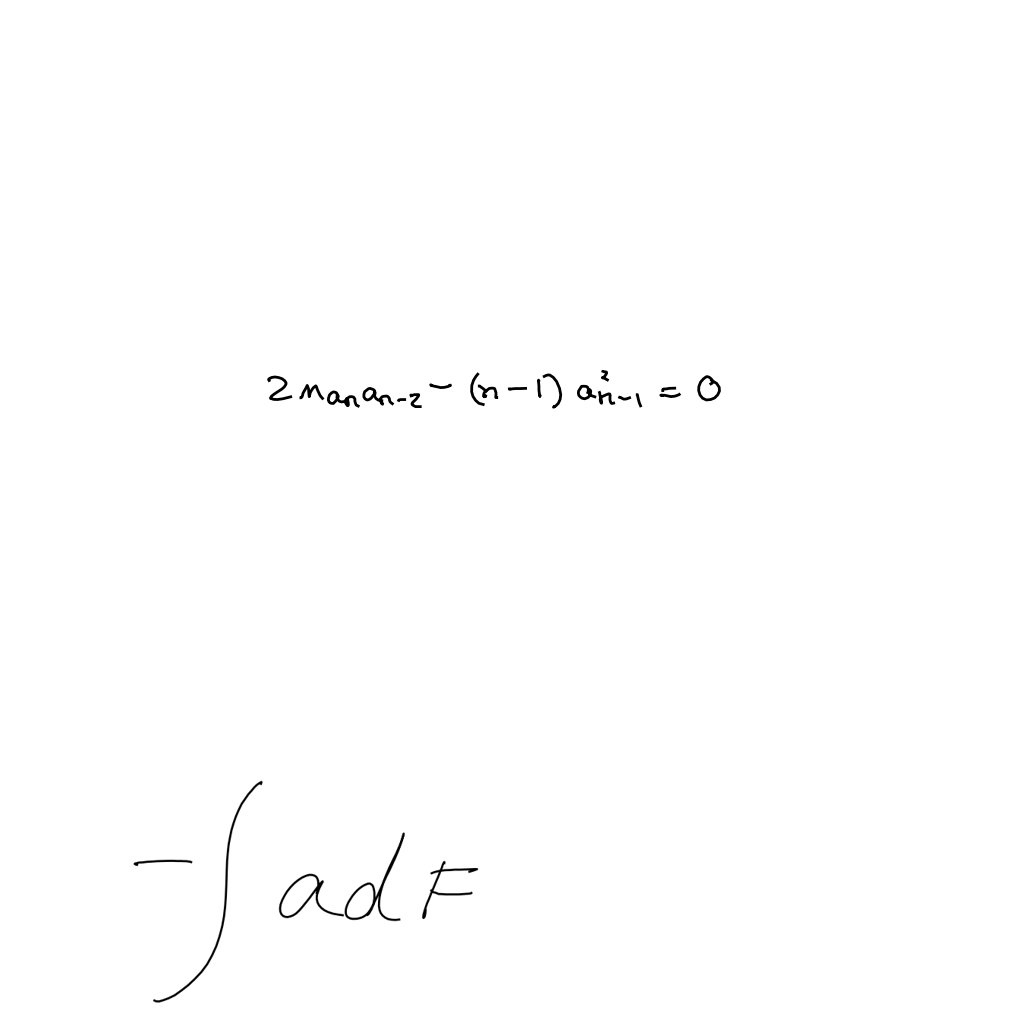 2na_n a_{n-2} - (n-1) a_{n-1}^2 = 0
-∫ a d F